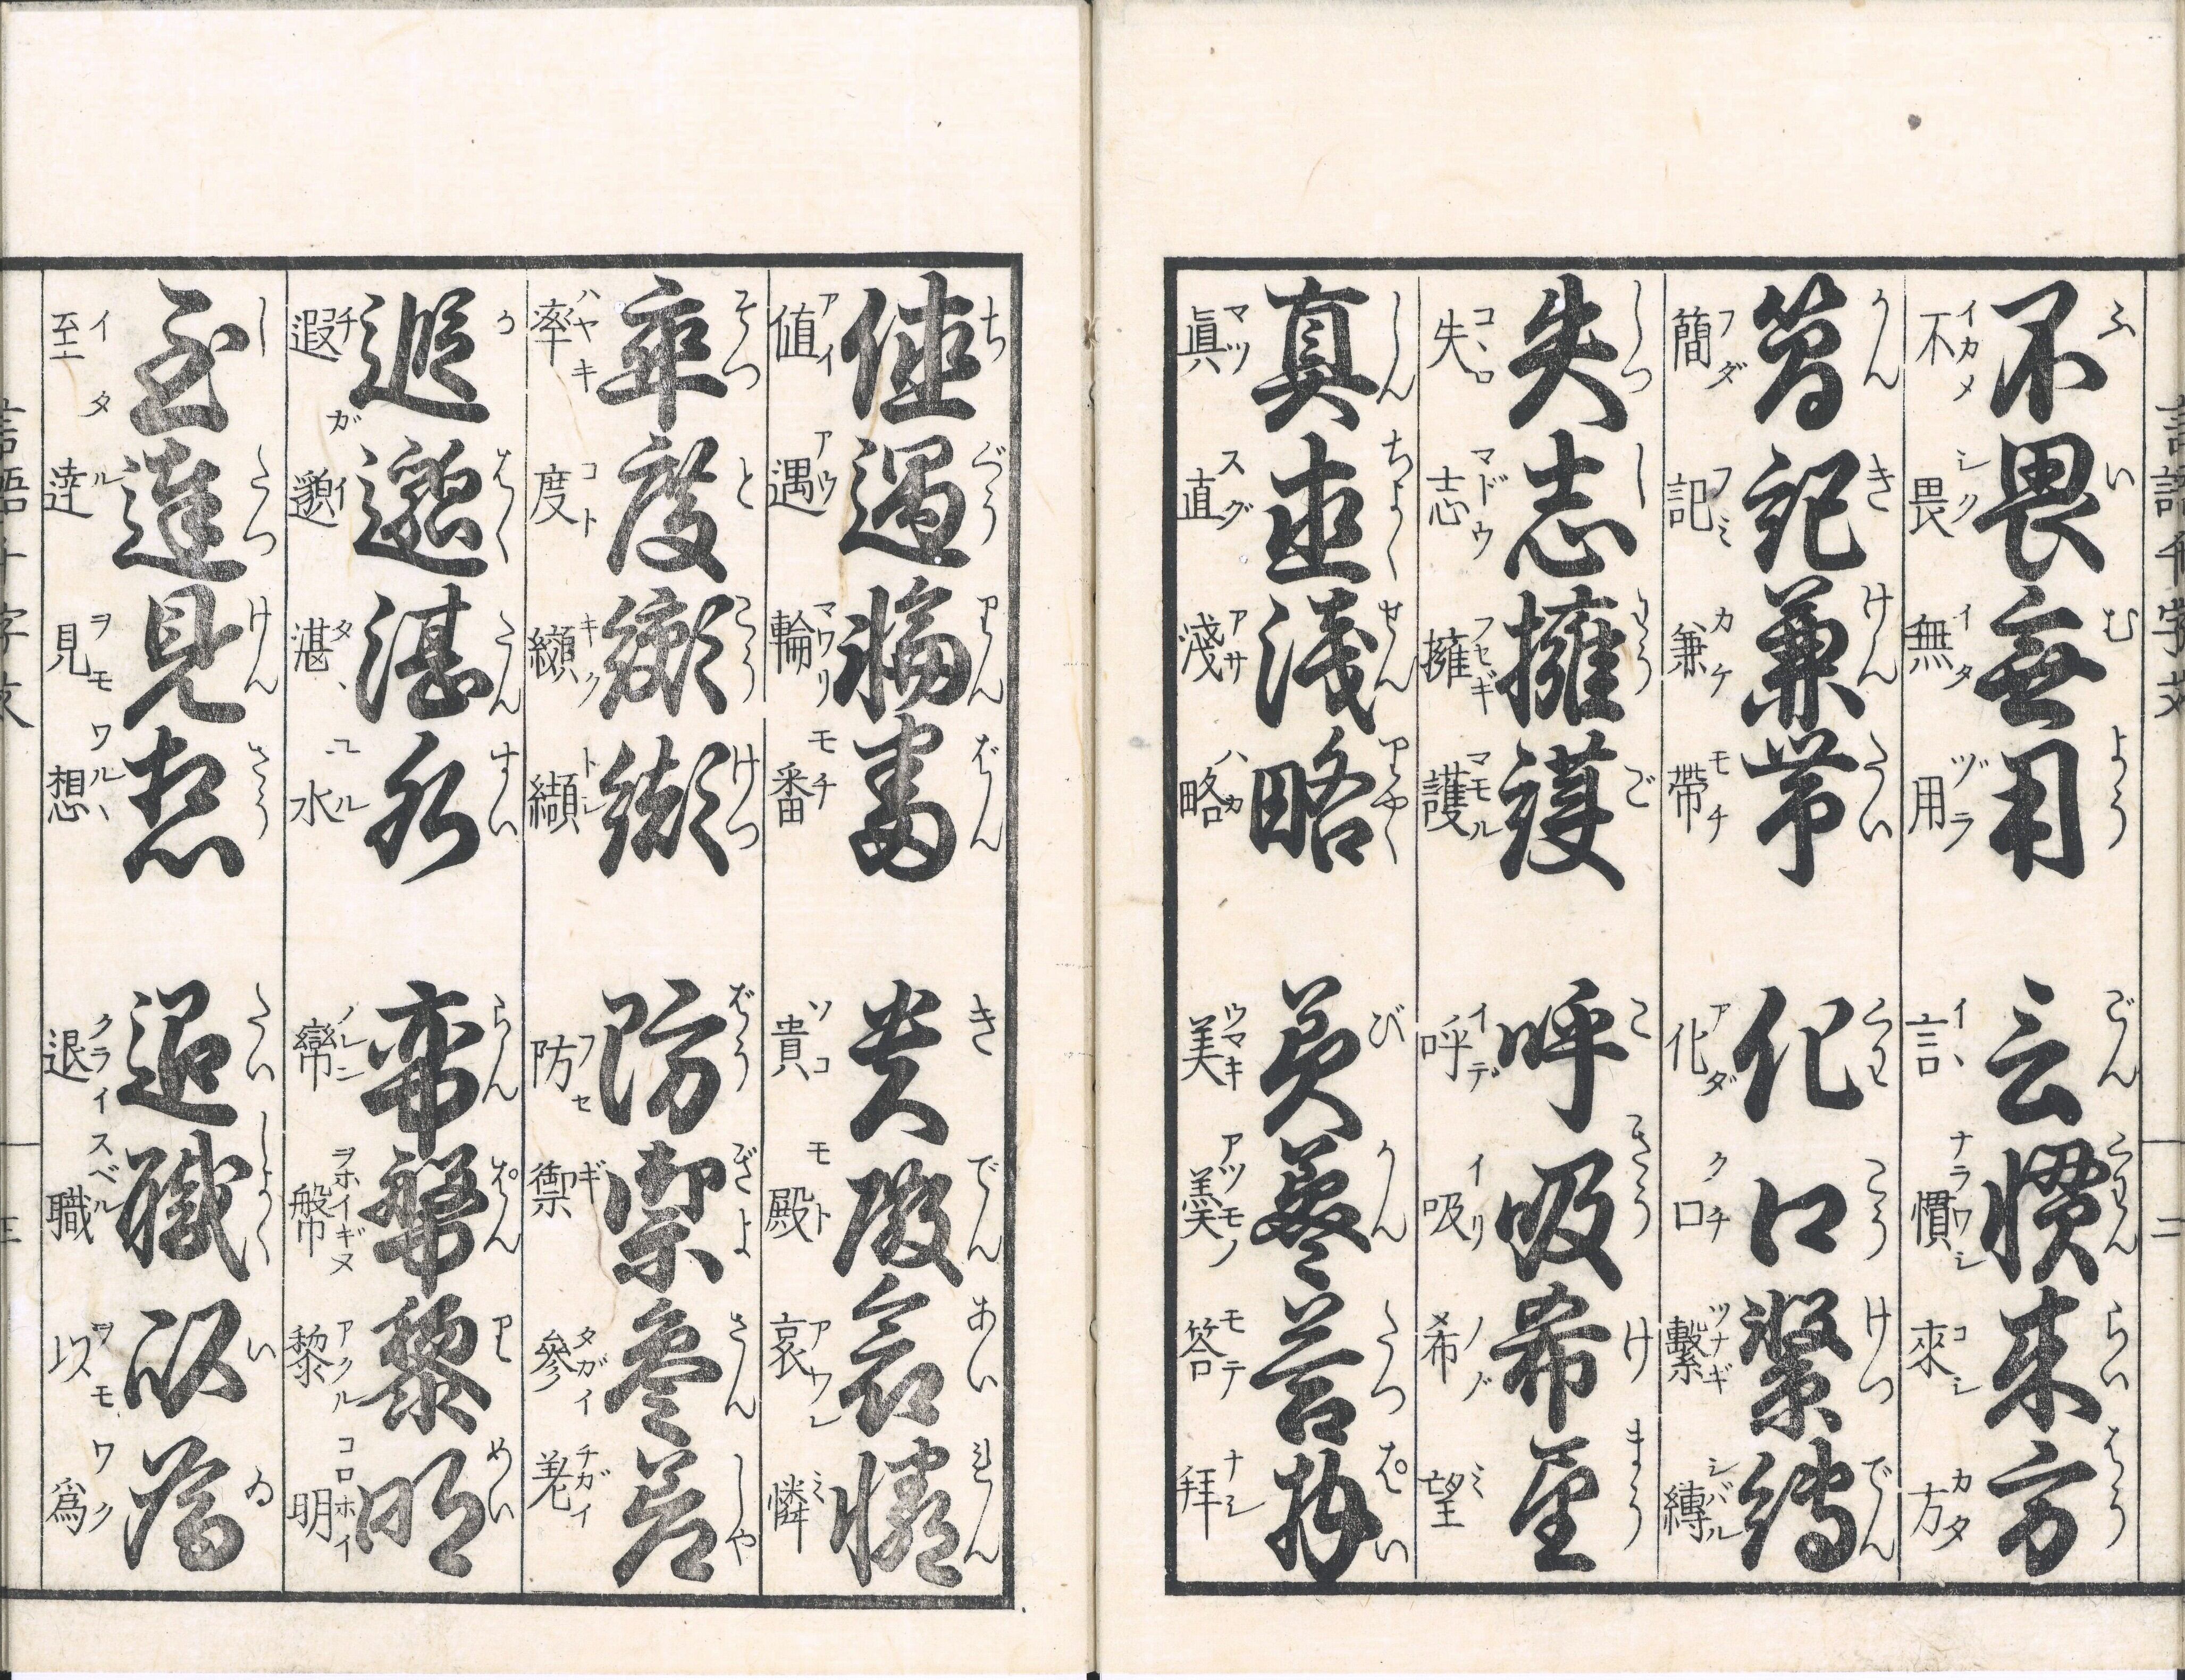 言語千字文 二
ふ い む よう ごん くわん らい はう
不畏無用 言慣来方
イカメ シク イタ ヅラ イヽ ナラワシ コシ カタ
不畏無用 言慣來方
かん き けん たい くわ こう けつ でん
簡記兼帯 化口繋縛
フダ フミ カケ モチ アダ クチ ツナギ シバル
簡記兼帶 化口繫縛
しつ し よう ご こ きう け まう
失志擁護 呼吸希望
コヽロ マドウ フセギ マモル イデ イリ ノゾ ミ
失志擁護 呼吸希望
しん ちよく せん りやく び かん たつ はい
真直浅略 美羹答拜
マツ スグ アサ ハカ ウマキ アツモノ モテ ナシ
眞直淺略 美羹答拜
ち ぐう りん ばん き でん あい れん
値遇輪番 貴殿哀憐
アイ アウ マワリ モチ ソコ モト アワレ ミ
値遇輪番 貴殿哀憐
そつ と こう けつ ばう ぎよ さん しや
率度纐纈 防禦参差
ハヤキ コト キク トレ フセ ギ タガイ チガイ
率度纐纈 防禦參差
か ばく たん すい らん ぱん り めい
遐邈湛水 幝幋黎明
チ ガイ タヽ ユル ノレン ヲホイギヌ アクル コロホイ
遐邈湛水 幋黎明
し たつ けん さう たい しよく い ゐ
至達見想 退職以為
イタ ル ヲモ ワルヽ クライ スベル ヲモ ワク
至達見想 退職以爲
言語千字文 三